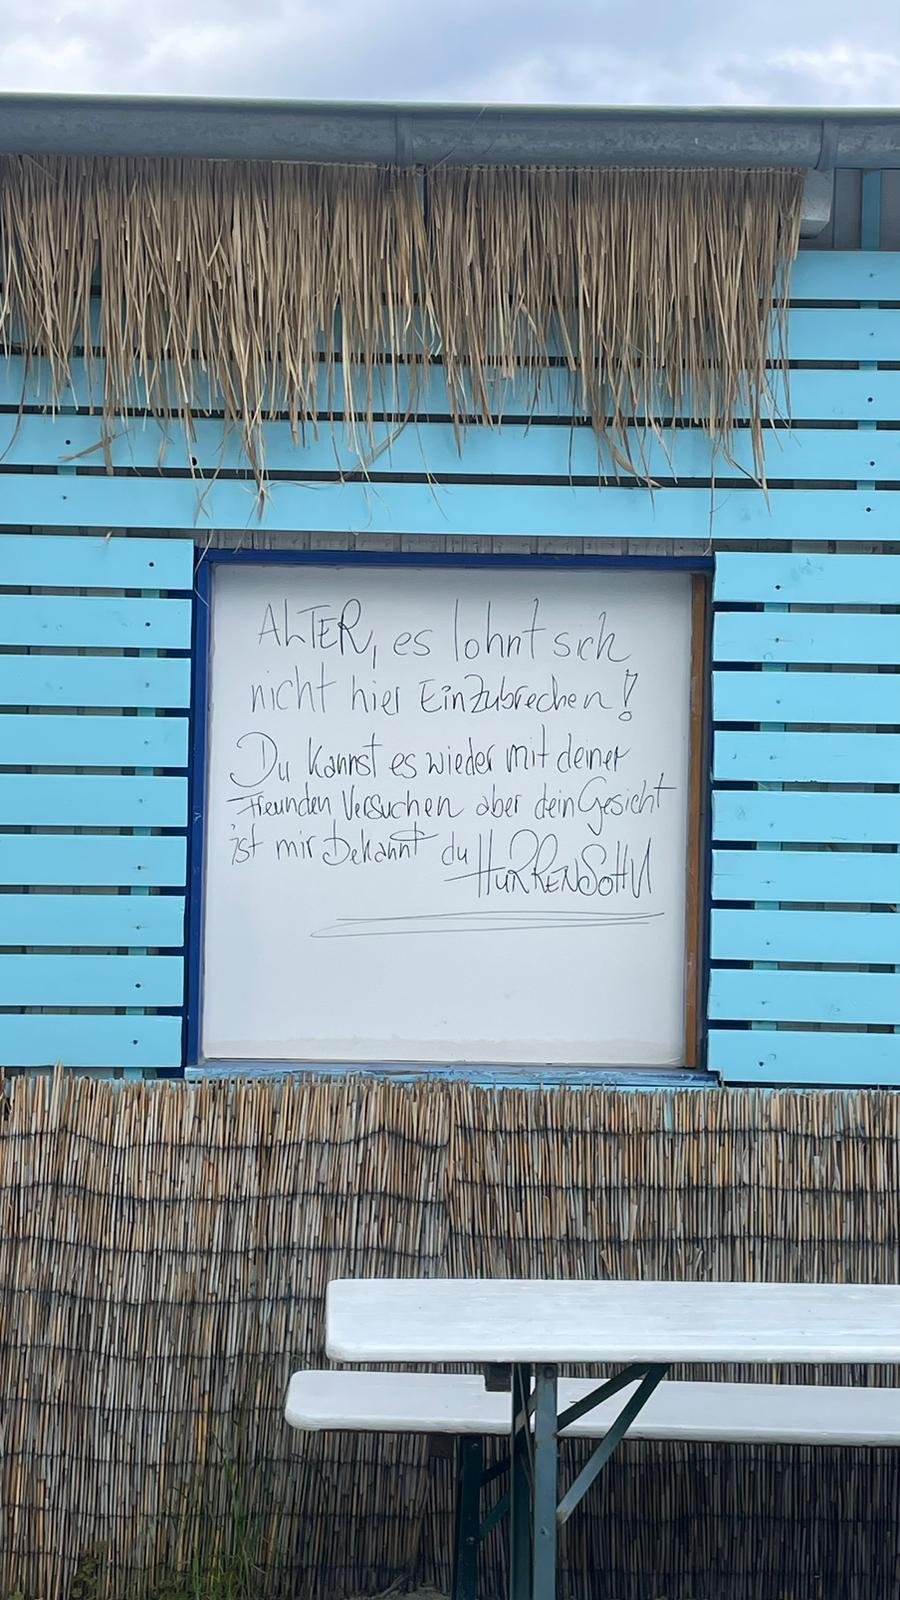 ALTER, es lohnt sich
nicht hier EinZubrechen!
Du kannst es wieder mit deiner
Freunden Versuchen aber dein Gesicht
ist mir Bekannt du HURRENSOHN